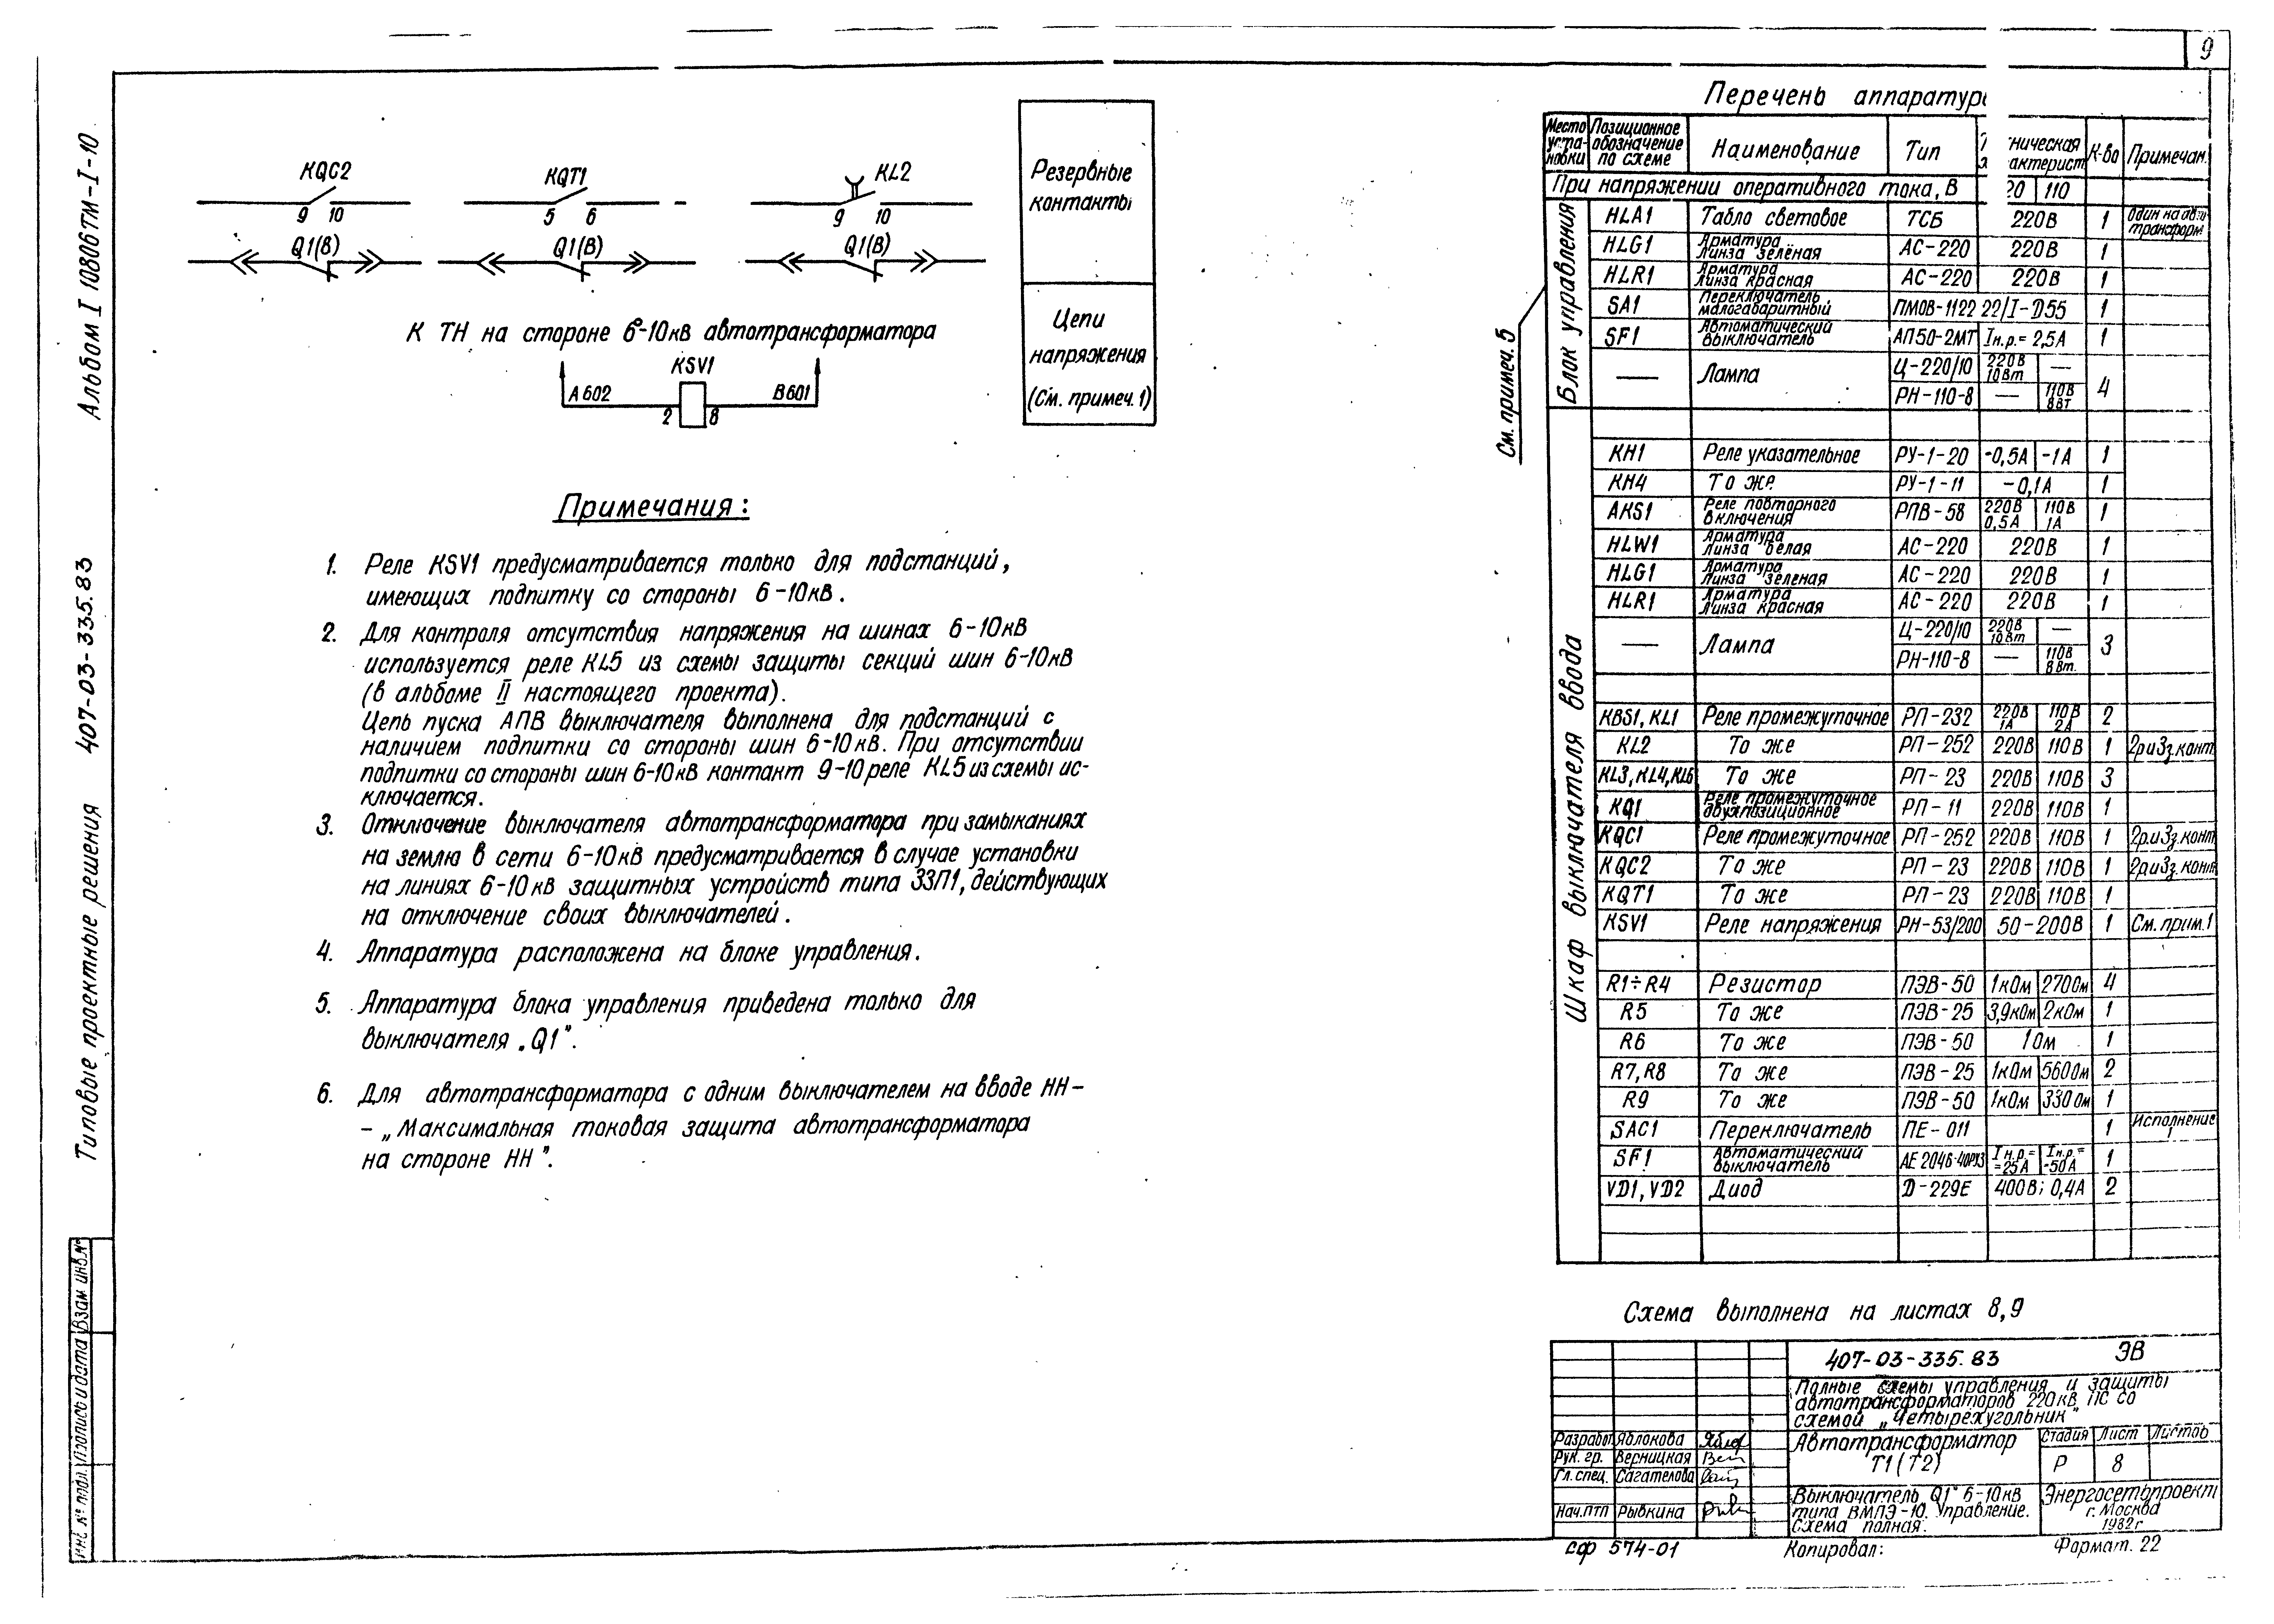 9
Альбом I 10806ТМ-I-10
407-03-335.83
Типовые проектные решения
Взам инв.№
Подпись и дата
Инв. № подл.
KQC2
9 10
Q1(В)
KQT1
5 6
Q1(В)
KL2
9 10
Q1(В)
Резервные
контакты
К ТН на стороне 6-10кВ автотрансформатора
KSV1
А602
2 8
В601
Цепи
напряжения
(См. примеч. 1)
Примечания:
1. Реле KSV1 предусматривается только для подстанций,
имеющих подпитку со стороны 6-10кВ.
2. Для контроля отсутствия напряжения на шинах 6-10кВ
используется реле KL5 из схемы защиты секций шин 6-10кВ
(в альбоме II настоящего проекта).
Цепь пуска АПВ выключателя выполнена для подстанций с
наличием подпитки со стороны шин 6-10кВ. При отсутствии
подпитки со стороны шин 6-10кВ контакт 9-10 реле KL5 из схемы ис-
ключается.
3. Отключение выключателя автотрансформатора при замыканиях
на землю в сети 6-10кВ предусматривается в случае установки
на линиях 6-10кВ защитных устройств типа ЗЗП1, действующих
на отключение своих выключателей.
4. Аппаратура расположена на блоке управления.
5. Аппаратура блока управления приведена только для
выключателя „Q1".
6. Для автотрансформатора с одним выключателем на вводе НН-
- „Максимальная токовая защита автотрансформатора
на стороне НН".
Перечень аппаратур
Место уста- новки Позиционное обозначение по схеме Наименование Тип ническая актерист К-во Примечан.
При напряжении оперативного тока, В 20 110
См. примеч. 5
Блок управления
HLA1 Табло световое ТСБ 220В 1 Один на авто трансформ.
HLG1 Арматура Линза зелёная АС-220 220В 1
HLR1 Арматура Линза красная АС-220 220В 1
SA1 Переключатель малогабаритный ПМОВ-1122 22/I-D55 1
SF1 Автоматический выключатель АП50-2МТ Iн.р.=2,5А 1
— Лампа Ц-220/10 220В 10Вт — 4
РН-110-8 — 110В 8Вт
Шкаф выключателя ввода
KH1 Реле указательное РУ-1-20 -0,5А -1А 1
KH4 То же РУ-1-11 -0,1А 1
AKS1 Реле повторного включения РПВ-58 220В 0,5А 110В 1А 1
HLW1 Арматура Линза белая АС-220 220В 1
HLG1 Арматура Линза зеленая АС-220 220В 1
HLR1 Арматура Линза красная АС-220 220В 1
— Лампа Ц-220/10 220В 10Вт — 3
РН-110-8 — 110В 8Вт.
KBS1, KL1 Реле промежуточное РП-232 220В 1А 110В 2А 2
KL2 То же РП-252 220В 110В 1 2р и 3з.конт
KL3, KL4, KL6 То же РП-23 220В 110В 3
KQ1 Реле промежуточное двухпозиционное РП-11 220В 110В 1
KQC1 Реле промежуточное РП-252 220В 110В 1 2р.и 3з.конт
KQC2 То же РП-23 220В 110В 1 2р и 3з.конт
KQT1 То же РП-23 220В 110В 1
KSV1 Реле напряжения РН-53/200 50-200В 1 См.прим.1
R1÷R4 Резистор ПЭВ-50 1кОм 270Ом 4
R5 То же ПЭВ-25 3,9кОм 2кОм 1
R6 То же ПЭВ-50 1Ом 1
R7, R8 То же ПЭВ-25 1кОм 560Ом 2
R9 То же ПЭВ-50 1кОм 330Ом 1
SAC1 Переключатель ПЕ-011 1 Исполнение 1
SF1 Автоматический выключатель АЕ 2046-40РУ3 Iн.р.= =25А Iн.р.= -50А 1
VD1, VD2 Диод Д-229Е 400В; 0,4А 2
Схема выполнена на листах 8,9
407-03-335.83 ЭВ
Полные схемы управления и защиты
автотрансформаторов 220кВ ПС со
схемой „Четырехугольник"
Разработ Яблокова
Рук. гр. Верницкая
Гл. спец. Сагателова
Нач.ПТП Рывкина
Автотрансформатор
Т1(Т2)
Стадия Лист Листов
Р 8
Выключатель „Q1" 6-10кВ
типа ВМПЭ-10. Управление.
Схема полная.
Энергосетьпроект
г. Москва
1982г
сф 574-01
Копировал:
Формат. 22